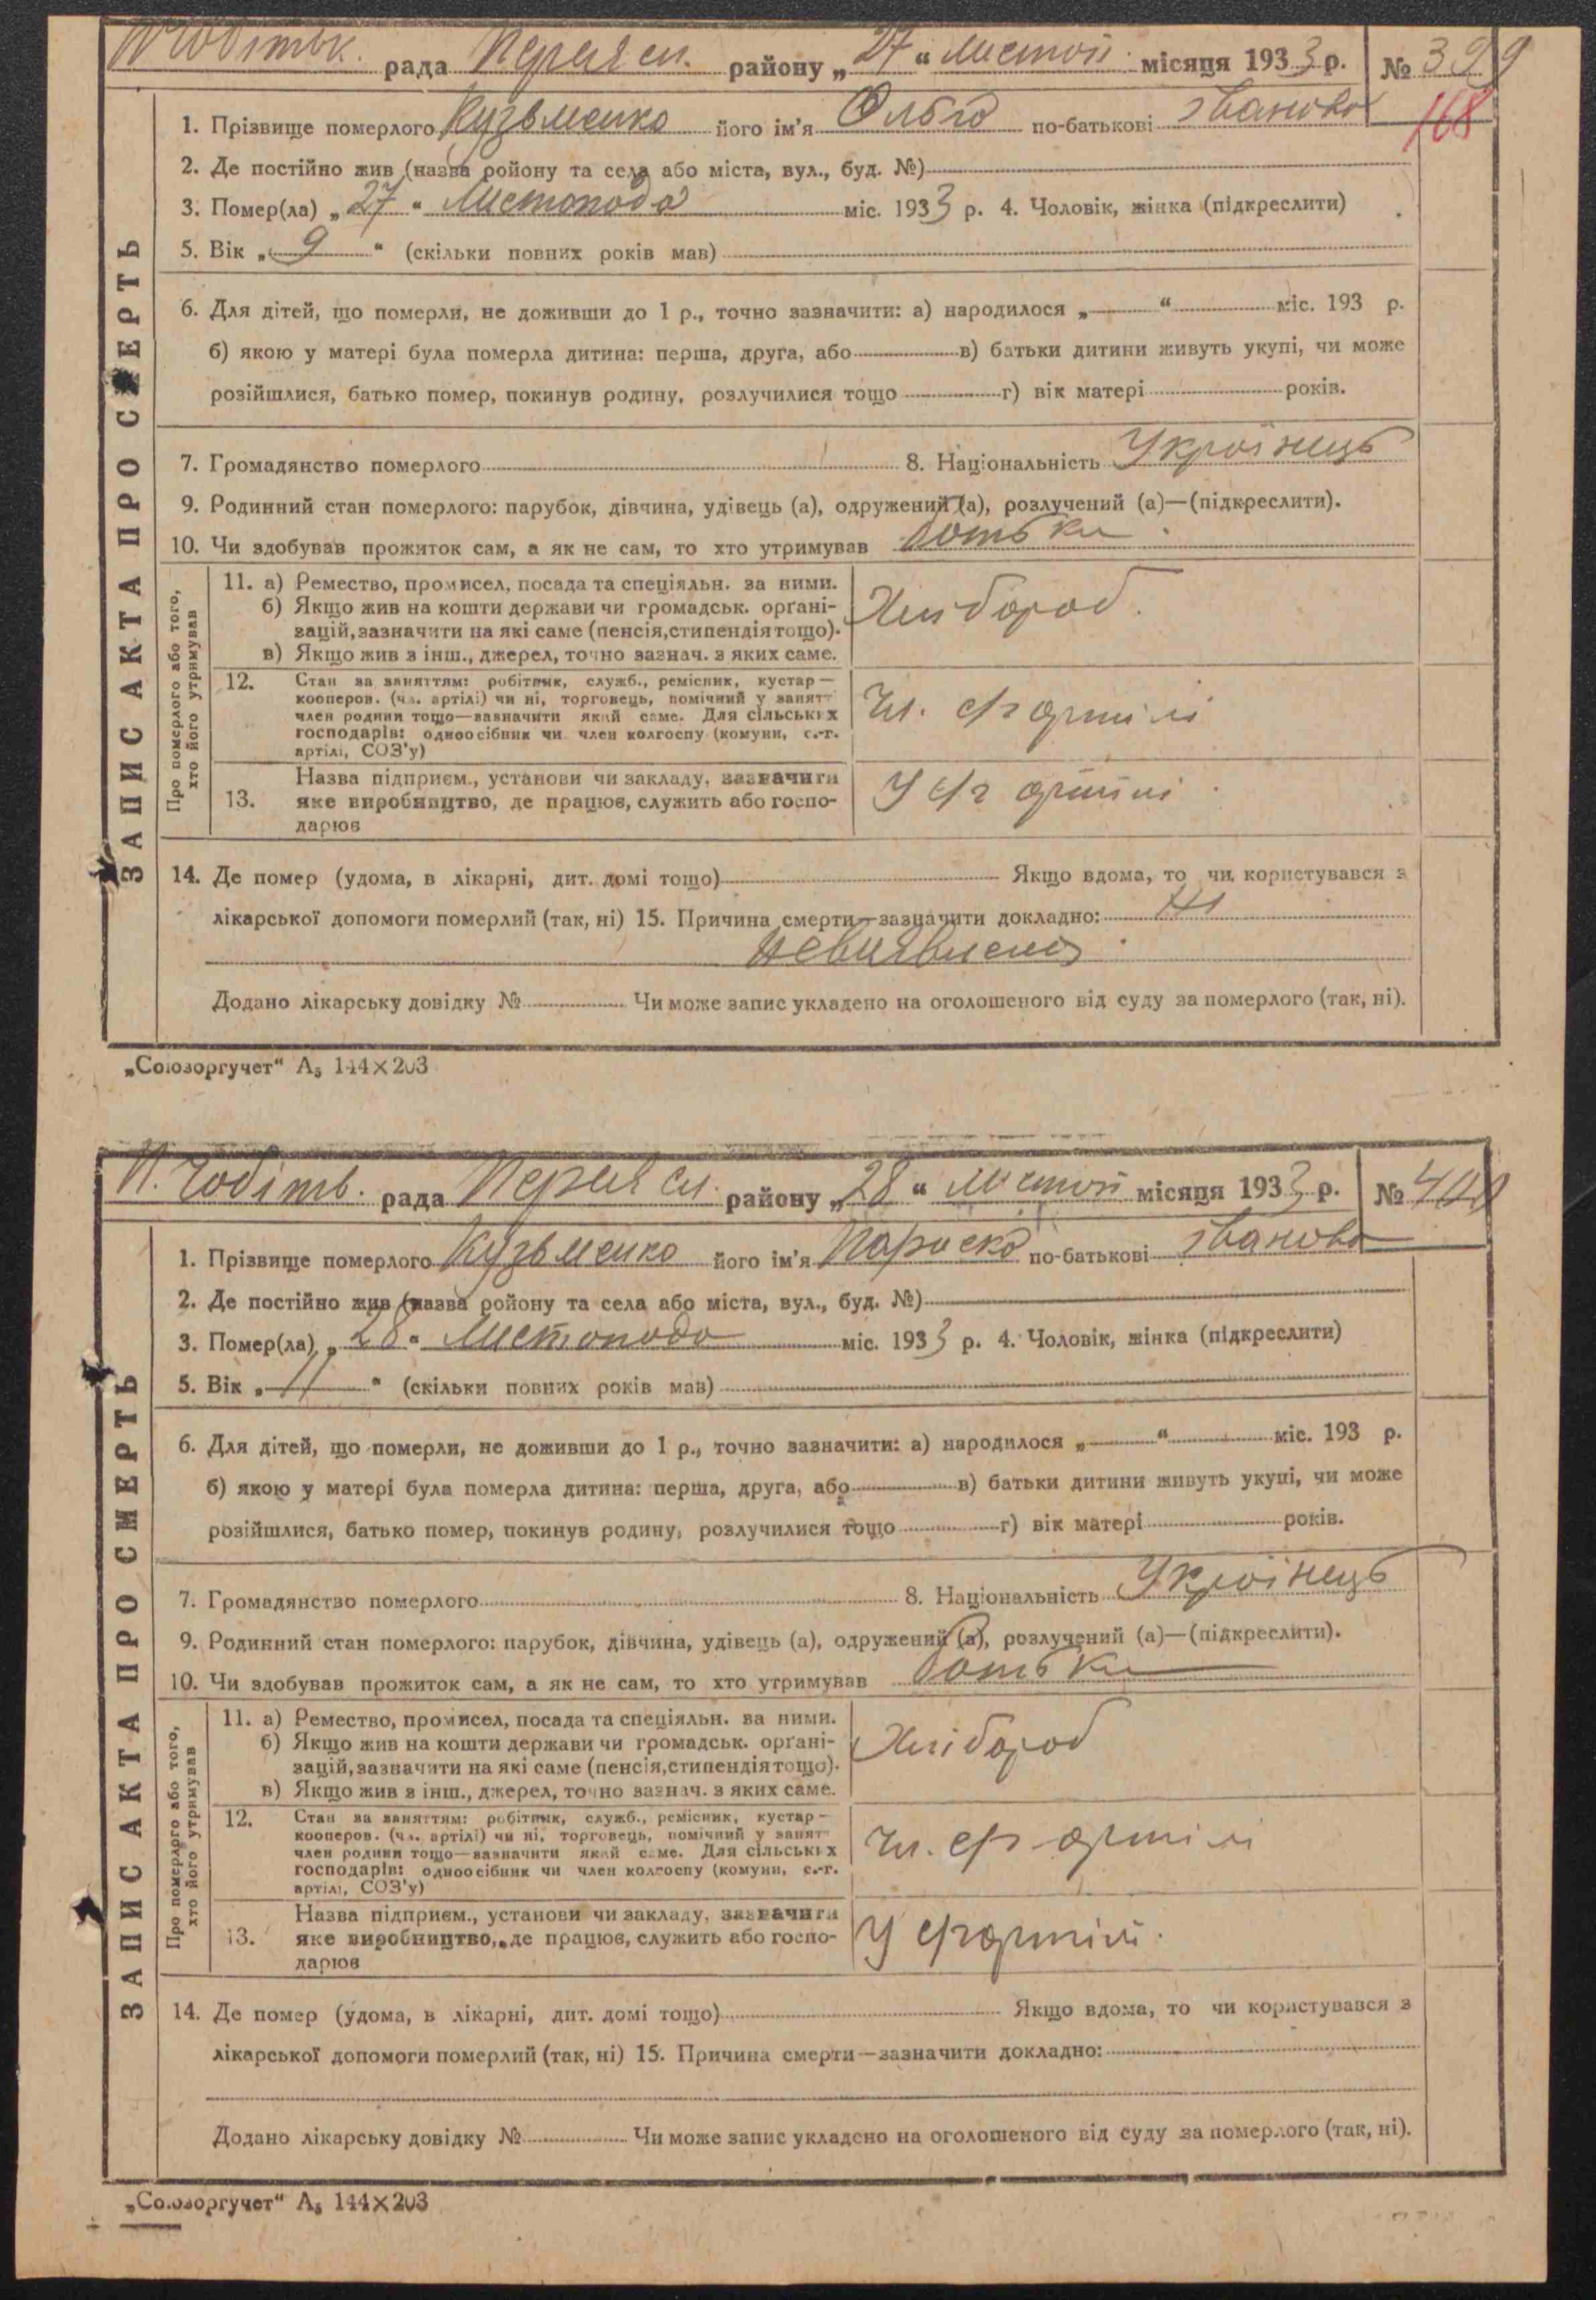 П. Чобітьк. рада Переясл. району „27“ листоп. місяця 1933 р. № 399
168
1. Прізвище померлого Кузьменко його ім'я Ольга по-батькові Іванова
2. Де постійно жив (назва ройону та села або міста, вул., буд. №)
3. Помер(ла) „27“ Листопода міс. 1933 р. 4. Чоловік, жінка (підкреслити)
5. Вік „9“ (скільки повних років мав)
6. Для дітей, що померли, не доживши до 1 р., точно зазначити: а) народилося „ “ міс. 193 р.
б) якою у матері була померла дитина: перша, друга, або в) батьки дитини живуть укупі, чи може
розійшлися, батько помер, покинув родину, розлучилися тощо г) вік матері років.
7. Громадянство померлого 8. Національність Українець
9. Родинний стан померлого: парубок, дівчина, удівець (а), одружений (а), розлучений (а)—(підкреслити).
10. Чи здобував прожиток сам, а як не сам, то хто утримував батьки
ЗАПИС АКТА ПРО СМЕРТЬ
Про померлого або того,
хто його утримував
11. а) Ремество, промисел, посада та спеціяльн. за ними.
б) Якщо жив на кошти держави чи громадськ. орґані-
зацій, зазначити на які саме (пенсія, стипендія тощо).
в) Якщо жив з інш., джерел, точно зазнач. з яких саме.
Хлібороб.
12. Стан за заняттям: робітник, служб., ремісник, кустар—
кооперов. (чл. артілі) чи ні, торговець, помічний у занятт
член родини тощо—зазначити який саме. Для сільських
господарів: одноосібник чи член колгоспу (комуни, с.-г.
артілі, СОЗ'у)
Чл. с/г артілі
13. Назва підприєм., установи чи закладу, зазначити
яке виробництво, де працює, служить або госпо-
дарює
У с/г артілі
14. Де помер (удома, в лікарні, дит. домі тощо) Якщо вдома, то чи користувався з
лікарської допомоги померлий (так, ні) 15. Причина смерти—зазначити докладно: Ні
невиявлена
Додано лікарську довідку № Чи може запис укладено на оголошеного від суду за померлого (так, ні).
„Союзоргучет“ А₅ 144×203
П. Чобітв. рада Переясл. району „28“ листоп місяця 1933 р. № 400
1. Прізвище померлого Кузьменко його ім'я Параска по-батькові Іванова
2. Де постійно жив (назва ройону та села або міста, вул., буд. №)
3. Помер(ла) „28“ Листопода міс. 1933 р. 4. Чоловік, жінка (підкреслити)
5. Вік „11“ (скільки повних років мав)
6. Для дітей, що померли, не доживши до 1 р., точно зазначити: а) народилося „ “ міс. 193 р.
б) якою у матері була померла дитина: перша, друга, або в) батьки дитини живуть укупі, чи може
розійшлися, батько помер, покинув родину, розлучилися тощо г) вік матері років.
7. Громадянство померлого 8. Національність Українець
9. Родинний стан померлого: парубок, дівчина, удівець (а), одружений (а), розлучений (а)—(підкреслити).
10. Чи здобував прожиток сам, а як не сам, то хто утримував батьки
ЗАПИС АКТА ПРО СМЕРТЬ
Про померлого або того,
хто його утримував
11. а) Ремество, промисел, посада та спеціяльн. за ними.
б) Якщо жив на кошти держави чи громадськ. орґані-
зацій, зазначити на які саме (пенсія, стипендія тощо).
в) Якщо жив з інш., джерел, точно зазнач. з яких саме.
Хлібороб
12. Стан за заняттям: робітник, служб., ремісник, кустар—
кооперов. (чл. артілі) чи ні, торговець, помічний у занятт
член родини тощо—зазначити який саме. Для сільських
господарів: одноосібник чи член колгоспу (комуни, с.-г.
артілі, СОЗ'у)
Чл. с/г артілі
13. Назва підприєм., установи чи закладу, зазначити
яке виробництво, де працює, служить або госпо-
дарює
У с/г артілі.
14. Де помер (удома, в лікарні, дит. домі тощо) Якщо вдома, то чи користувався з
лікарської допомоги померлий (так, ні) 15. Причина смерти—зазначити докладно:
Додано лікарську довідку № Чи може запис укладено на оголошеного від суду за померлого (так, ні).
„Союзоргучет“ А₅ 144×203